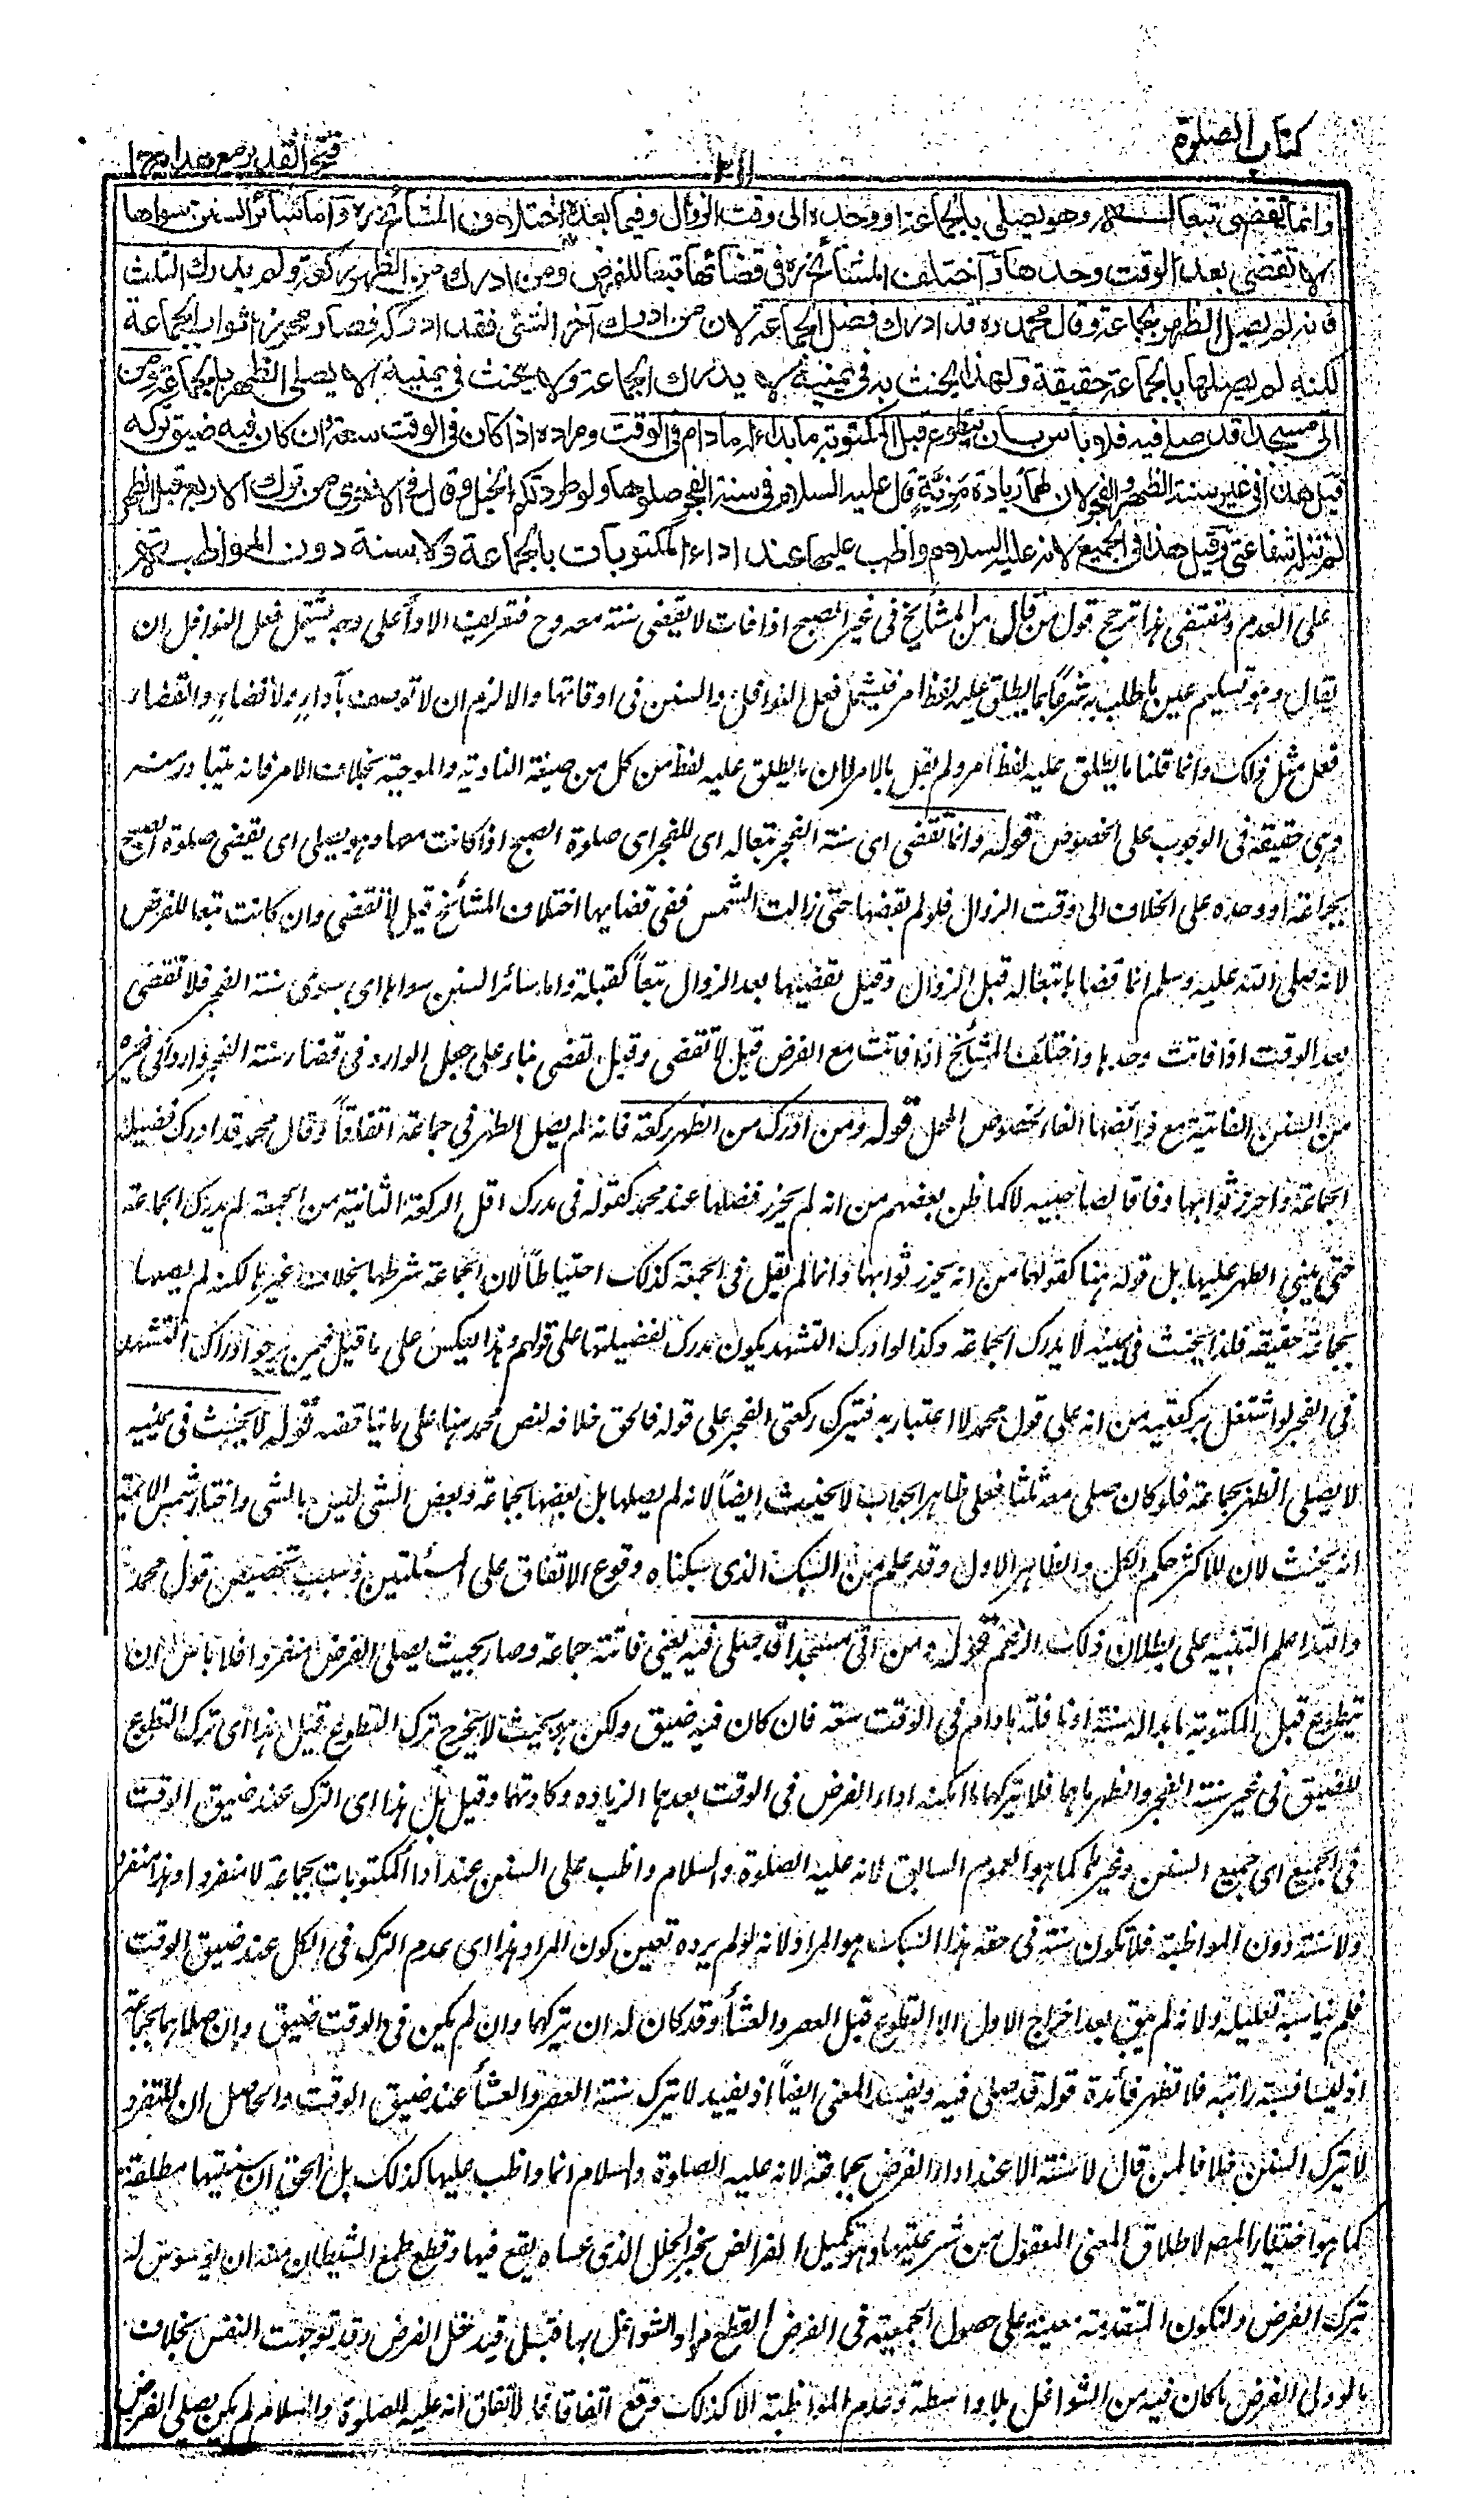 كتاب الصلوة
فتح القدير مع هدايه ج ١
وانما تقضى تبعا له وهو يصلى بالجماعة او وحده الى وقت الزوال وفيما بعده اختلاف المشائخ ره واما سائر السنن سواها
لا تقضى بعد الوقت وحدها واختلف المشائخ ره فى قضائها تبعا للفرض ومن ادرك من الظهر ركعة ولم يدرك الثلث
فانه لم يصل الظهر بجماعة وقال محمد ره قد ادرك فضل الجماعة لان من ادرك آخر الشئ فقد ادركه فصار محرزا ثواب الجماعة
لكنه لم يصلها بالجماعة حقيقة ولهذا يحنث به فى يمينه لا يدرك الجماعة ولا يحنث فى يمينه لا يصلى الظهر بالجماعة ومن
اتى مسجدا قد صلے فيه فلا باس بان يتطوع قبل المكتوبة ما بدا له ما دام فى الوقت ومراده اذا كان فى الوقت سعة وان كان فيه ضيق تركه
قيل هذا فى غير سنة الظهر والفجر لان لهما زيادة مزية قال عليه السلام فى سنة الفجر صلوها ولو طردتكم الخيل وقال فى الاخرى من ترك الاربع قبل الظهر
لم تنله شفاعتى وقيل هذا فى الجميع لانه عليه السلام واظب عليها عند اداء المكتوبات بالجماعة ولا سنة دون المواظبة
على العدم ومقتضى هذا ترجح قول من قال من المشايخ فى غير الصبح اذا فات لا يقضى سنته معه وح فتعريف الاداء على وجه يشتمل فعل النوافل ان
يقال وهو تسليم عين ما طلب به شرعا بما يطلق عليه لفظ امر فيشمل فعل النوافل والسنن فى اوقاتها والا لزم ان لا توصف بآداء ولا قضاء والقضاء
فعل مثل ذلك وانما قلنا ما يطلق عليه لفظ امر ولم نقل بالامر لان ما يطلق عليه لفظ من كل من صيغة النادبة والموجبة بخلاف الامر فانه يتبادر منه
وهى حقيقة فى الوجوب على الخصوص قوله وانما تقضى اى سنة الفجر تبعا له اى للفجر اى صلوة الصبح اذا كانت معها وهو يصلى اى يقضى صلوة الصبح
بجماعة او وحده على الخلاف الى وقت الزوال فلو لم تقضها حتى زالت الشمس ففى قضايها اختلاف المشائخ قيل لا تقضى وان كانت تبعا للفرض
لانه صلى الله عليه وسلم انما قضاها تبعا له قبل الزوال وقيل يقضيها بعد الزوال تبعاً كقبله واما سائر السنن سواها اى سوى سنة الفجر فلا تقضى
بعد الوقت اذا فاتت وحدها واختلف المشائخ اذا فاتت مع الفرض قيل لا تقضى وقيل تقضى بناء على جعل الوارد فى قضاء سنة الفجر واردا فى غيره
من السنن الفائتة مع فرائضها الغاء لخصوص المحل قوله ومن ادرك من الظهر ركعة فانه لم يصل الظهر فى جماعة اتفاقاً وقال محمد قد ادرك فضيلة
الجماعة واحرز ثوابها وفاقا لصاحبيه لا كما ظن بعضهم من انه لم يحرز فضلها عند محمد كقوله فى مدرك اقل الركعة الثانية من الجمعة لم يدرك الجماعة
حتى يبنى الظهر عليها بل قوله هنا كقولهما من انه يحرز ثوابها وانما لم يقل فى الجمعة كذلك احتياطاً لان الجماعة شرطها بخلاف غيرها لكنه لم يصلها
بجماعة حقيقة فلذا يحنث فى يمينه لا يدرك الجماعة وكذا لو ادرك التشهد يكون مدرك لفضيلتها على قولهم وهذا يعكس على ما قيل فيمن يرجو ادراك التشهد
فى الفجر لو اشتغل بركعتيه من انه على قول محمد لا اعتبار به فيترك ركعتى الفجر على قوله فالحق خلافه لنص محمد هنا على ما يناقضه قوله لا يحنث فى يمينه
لا يصلى الظهر بجماعة فلو كان صلى معه ثلثا فعلى ظاهر الجواب لا يحنث ايضاً لانه لم يصلها بل بعضها بجماعة وبعض الشئ ليس بالشئ واختيار شمس الائمة
انه يحنث لان للاكثر حكم الكل والظاهر الاول وقد علم من السبك الذى سبكناه وقوع الاتفاق على المسئلتين وسبب تخصيص قول محمد
والله اعلم التنبيه على بطلان ذلك الزعم قوله ومن اتى مسجدا قد صلى فيه يعنى فاتته جماعة وصار بحيث يصلى الفرض منفردا فلا باس ان
يتطوع قبل المكتوبة ما بدا له سنة او نافلة ما دام فى الوقت سعة فان كان فيه ضيق ولكن هو بحيث لا يخرج ترك التطوع قيل هذا اى ترك التطوع
للضيق فى غير سنة الفجر والظهر اما هما فلا يتركهما ما امكنه اداء الفرض فى الوقت بعدهما الزيادة وكادتهما وقيل بل هذا اى الترك عند ضيق الوقت
فى الجميع اى جميع السنن وغيرهما كما هو العموم السابق لانه عليه الصلوة والسلام واظب على السنن عند ادا المكتوبات بجماعة لا منفردا وهذا منفرد
ولا سنة دون المواظبة فلا تكون سنة فى حقه هذا السبك هو المراد لانه لو لم يرده تعين كون المراد هذا اى عدم الترك فى الكل عند ضيق الوقت
فلم يناسبه تعليله ولانه لم يبق بعد اخراج الاول الا التطوع قبل العصر والعشاء وقد كان له ان يتركهما وان لم يكن فى الوقت ضيق وان صلاهما بجماعة
اذ ليسا بسنة راتبة فلا تظهر فائدة قوله قد صلى فيه ويفسد المعنى ايضاً اذ يفيد لا يترك سنة العصر والعشاء عند ضيق الوقت والحاصل ان المنفرد
لا يترك السنن خلافا لمن قال لا سنة الا عند اداء الفرض بجماعة لانه عليه الصلوة والسلام انما واظب عليها كذلك بل الحق ان سنيتها مطلقة
كما هو اختيار المصـ لاطلاق المعنى المعقول من شرعيتها وهو تكميل الفرائض بجبر الخلل الذى عساه يقع فيها وقطع طمع الشيطان منه ان يوسوس له
بترك الفرض ولتكون المتقدمة معينة على حصول الجمعية فى الفرض لقطع مواد الشواغل بها قبل قيد خل الفرض وقد توجهت النفس بخلاف
ما لو ولى الفرض ما كان فيه من الشواغل بلا واسطة وعدم المواظبة الا كذلك وقع اتفاقا لاتفاق انه عليه الصلوة والسلام لم يكن يصلى الفرض